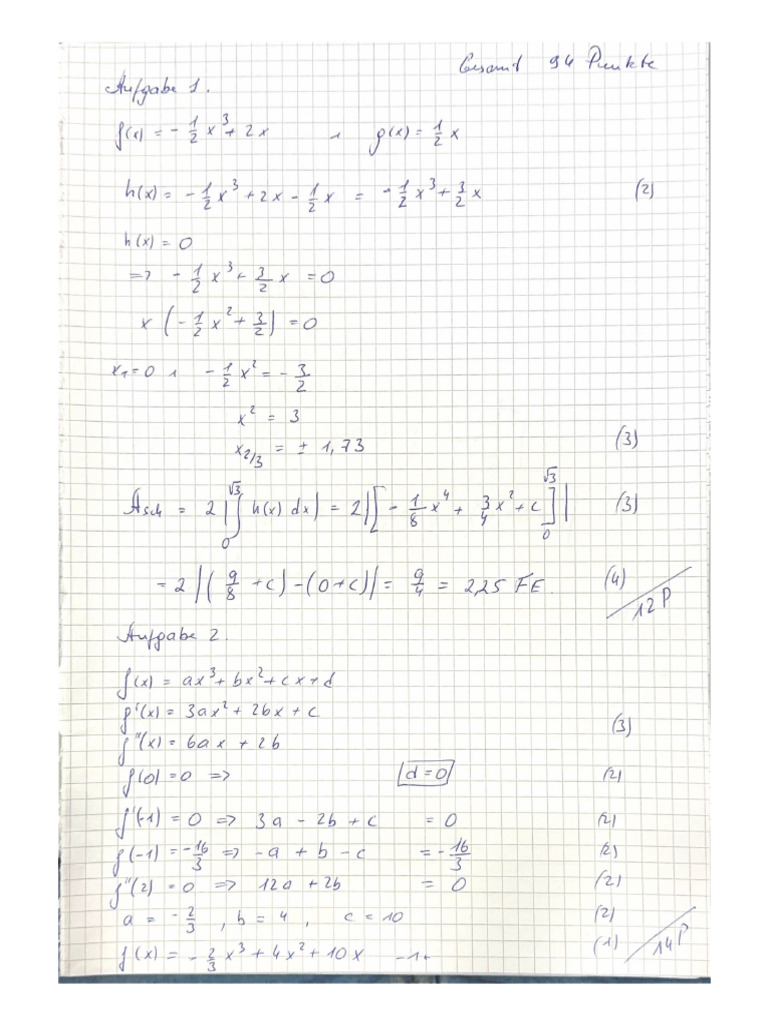 Gesamt 94 Punkte
Aufgabe 1.
f(x) = - 1/2 x³ + 2x , g(x) = 1/2 x
h(x) = - 1/2 x³ + 2x - 1/2 x = - 1/2 x³ + 3/2 x (2)
h(x) = 0
=> - 1/2 x³ + 3/2 x = 0
x (- 1/2 x² + 3/2) = 0
x₁ = 0 , - 1/2 x² = - 3/2
x² = 3
x₂/₃ = ± 1,73 (3)
A_Sch = 2 |∫₀^√3 h(x) dx| = 2 |[- 1/8 x⁴ + 3/4 x² + c]₀^√3| (3)
= 2 |(9/8 + c) - (0 + c)| = 9/4 = 2,25 FE. (4) / 12 P
Aufgabe 2.
f(x) = ax³ + bx² + cx + d
f'(x) = 3ax² + 2bx + c (3)
f''(x) = 6ax + 2b
f(0) = 0 => d = 0 (2)
f'(-1) = 0 => 3a - 2b + c = 0 (2)
f(-1) = -16/3 => -a + b - c = -16/3 (2)
f''(2) = 0 => 12a + 2b = 0 (2)
a = - 2/3 , b = 4 , c = 10 (2)
f(x) = - 2/3 x³ + 4x² + 10x (1) / 14 P